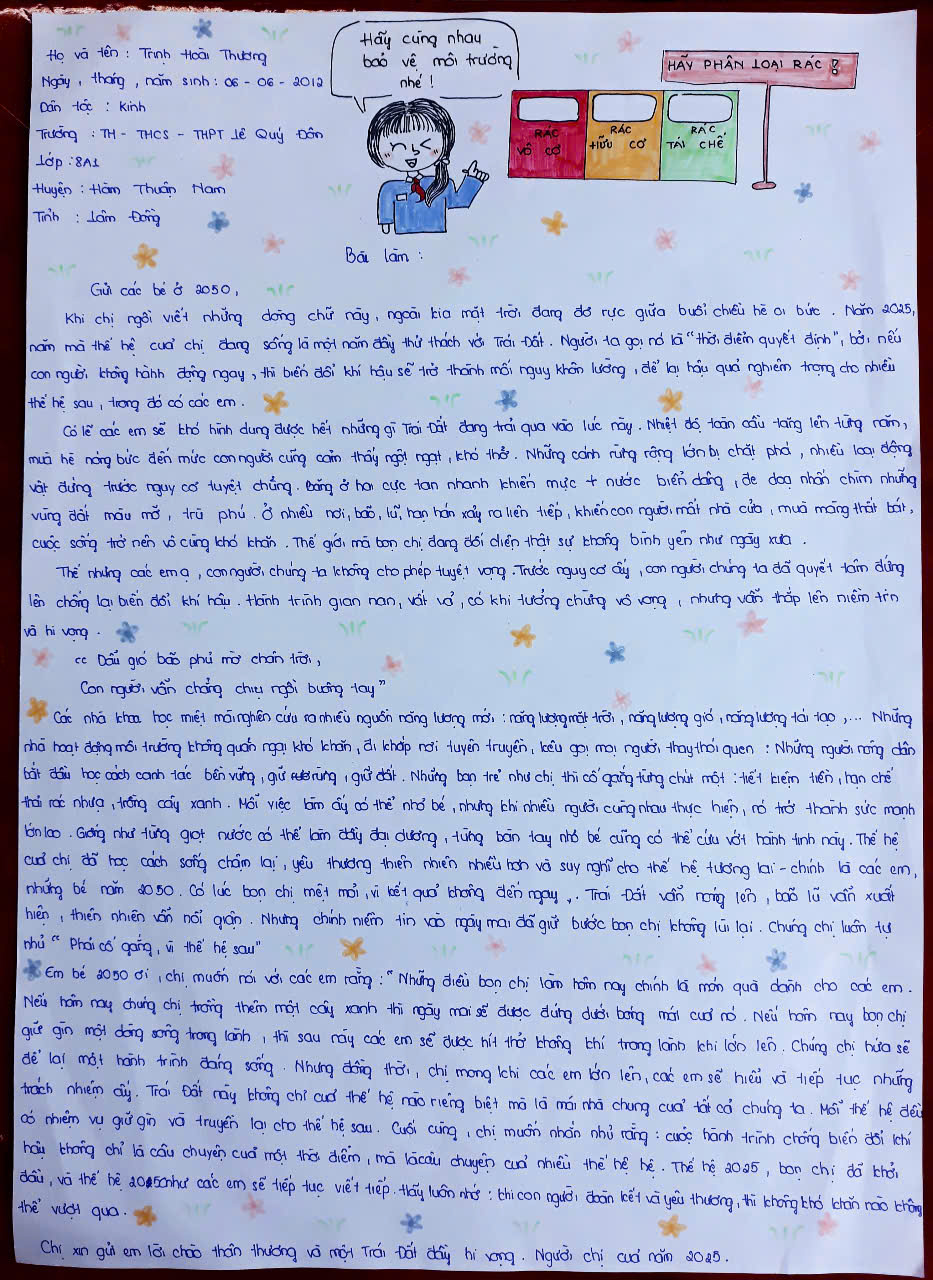 Họ và tên : Trịnh Hoài Thương
Ngày, tháng, năm sinh : 06 - 06 - 2012
Dân tộc : Kinh
Trường : TH - THCS - THPT Lê Quý Đôn
Lớp : 8A1
Huyện : Hàm Thuận Nam
Tỉnh : Lâm Đồng
Hãy cùng nhau
bảo vệ môi trường
nhé !
HÃY PHÂN LOẠI RÁC !
RÁC
VÔ CƠ
RÁC
HỮU CƠ
RÁC
TÁI CHẾ
Bài làm :
Gửi các bé ở 2050,
Khi chị ngồi viết những dòng chữ này, ngoài kia mặt trời đang đỏ rực giữa buổi chiều hè oi bức . Năm 2025,
năm mà thế hệ của chị đang sống là một năm đầy thử thách với Trái Đất . Người ta gọi nó là "thời điểm quyết định", bởi nếu
con người không hành động ngay , thì biến đổi khí hậu sẽ trở thành mối nguy khôn lường , để lại hậu quả nghiêm trọng cho nhiều
thế hệ sau , trong đó có các em .
Có lẽ các em sẽ khó hình dung được hết những gì Trái Đất đang trải qua vào lúc này . Nhiệt độ toàn cầu tăng lên từng năm,
mùa hè nóng bức đến mức con người cũng cảm thấy ngột ngạt , khó thở . Những cánh rừng rộng lớn bị chặt phá , nhiều loại động
vật đứng trước nguy cơ tuyệt chủng . Băng ở hai cực tan nhanh khiến mực + nước biển dâng , đe doạ nhấn chìm những
vùng đất màu mỡ , trù phú . Ở nhiều nơi, bão, lũ, hạn hán xảy ra liên tiếp , khiến con người mất nhà cửa , mùa màng thất bát,
cuộc sống trở nên vô cùng khó khăn . Thế giới mà bọn chị đang đối diện thật sự không bình yên như ngày xưa .
Thế nhưng các em ạ , con người chúng ta không cho phép tuyệt vọng . Trước nguy cơ ấy , con người chúng ta đã quyết tâm đứng
lên chống lại biến đổi khí hậu . Hành trình gian nan, vất vả , có khi tưởng chừng vô vọng , nhưng vẫn thắp lên niềm tin
và hi vọng .
“ Dẫu gió bão phủ mờ chân trời ,
Con người vẫn chẳng chịu ngồi buông tay ”
Các nhà khoa học miệt mài nghiên cứu ra nhiều nguồn năng lượng mới : năng lượng mặt trời , năng lượng gió , năng lượng tái tạo ,... Những
nhà hoạt động môi trường không quản ngại khó khăn, đi khắp nơi tuyên truyền , kêu gọi mọi người thay thói quen : Những người nông dân
bắt đầu học cách canh tác bền vững , giữ rừng , giữ đất . Những bạn trẻ như chị thì cố gắng từng chút một : tiết kiệm tiền , hạn chế
thải rác nhựa , trồng cây xanh . Mỗi việc làm ấy có thể nhỏ bé , nhưng khi nhiều người cùng nhau thực hiện , nó trở thành sức mạnh
lớn lao . Giống như từng giọt nước có thể làm đầy đại dương , từng bàn tay nhỏ bé cũng có thể cứu vớt hành tinh này . Thế hệ
của chị đã học cách sống chậm lại , yêu thương thiên nhiên nhiều hơn và suy nghĩ cho thế hệ tương lai - chính là các em ,
những bé năm 2050 . Có lúc bọn chị mệt mỏi , vì kết quả không đến ngay , . Trái Đất vẫn nóng lên , bão lũ vẫn xuất
hiện , thiên nhiên vẫn nổi giận . Nhưng chính niềm tin vào ngày mai đã giữ bước bọn chị không lùi lại . Chúng chị luôn tự
nhủ “ Phải cố gắng , vì thế hệ sau ”
Em bé 2050 ơi , chị muốn nói với các em rằng : “ Những điều bọn chị làm hôm nay chính là món quà dành cho các em .
Nếu hôm nay chúng chị trồng thêm một cây xanh thì ngày mai sẽ được đứng dưới bóng mát của nó . Nếu hôm nay bọn chị
giữ gìn một dòng sông trong lành , thì sau này các em sẽ được hít thở không khí trong lành khi lớn lên . Chúng chị hứa sẽ
để lại một hành trình đáng sống . Nhưng đồng thời , chị mong khi các em lớn lên , các em sẽ hiểu và tiếp tục những
trách nhiệm ấy . Trái Đất này không chỉ của thế hệ nào riêng biệt mà là mái nhà chung của tất cả chúng ta . Mỗi thế hệ đều
có nhiệm vụ giữ gìn và truyền lại cho thế hệ sau . Cuối cùng , chị muốn nhắn nhủ rằng : cuộc hành trình chống biến đổi khí
hậu không chỉ là câu chuyện của một thời điểm , mà là câu chuyện của nhiều thế hệ hệ . Thế hệ 2025 , bọn chị đã khởi
đầu , và thế hệ 2050 như các em sẽ tiếp tục viết tiếp . Hãy luôn nhớ : khi con người đoàn kết và yêu thương , thì không khó khăn nào không
thể vượt qua .
Chị xin gửi em lời chào thân thương và một Trái Đất đầy hi vọng . Người chị của năm 2025 .